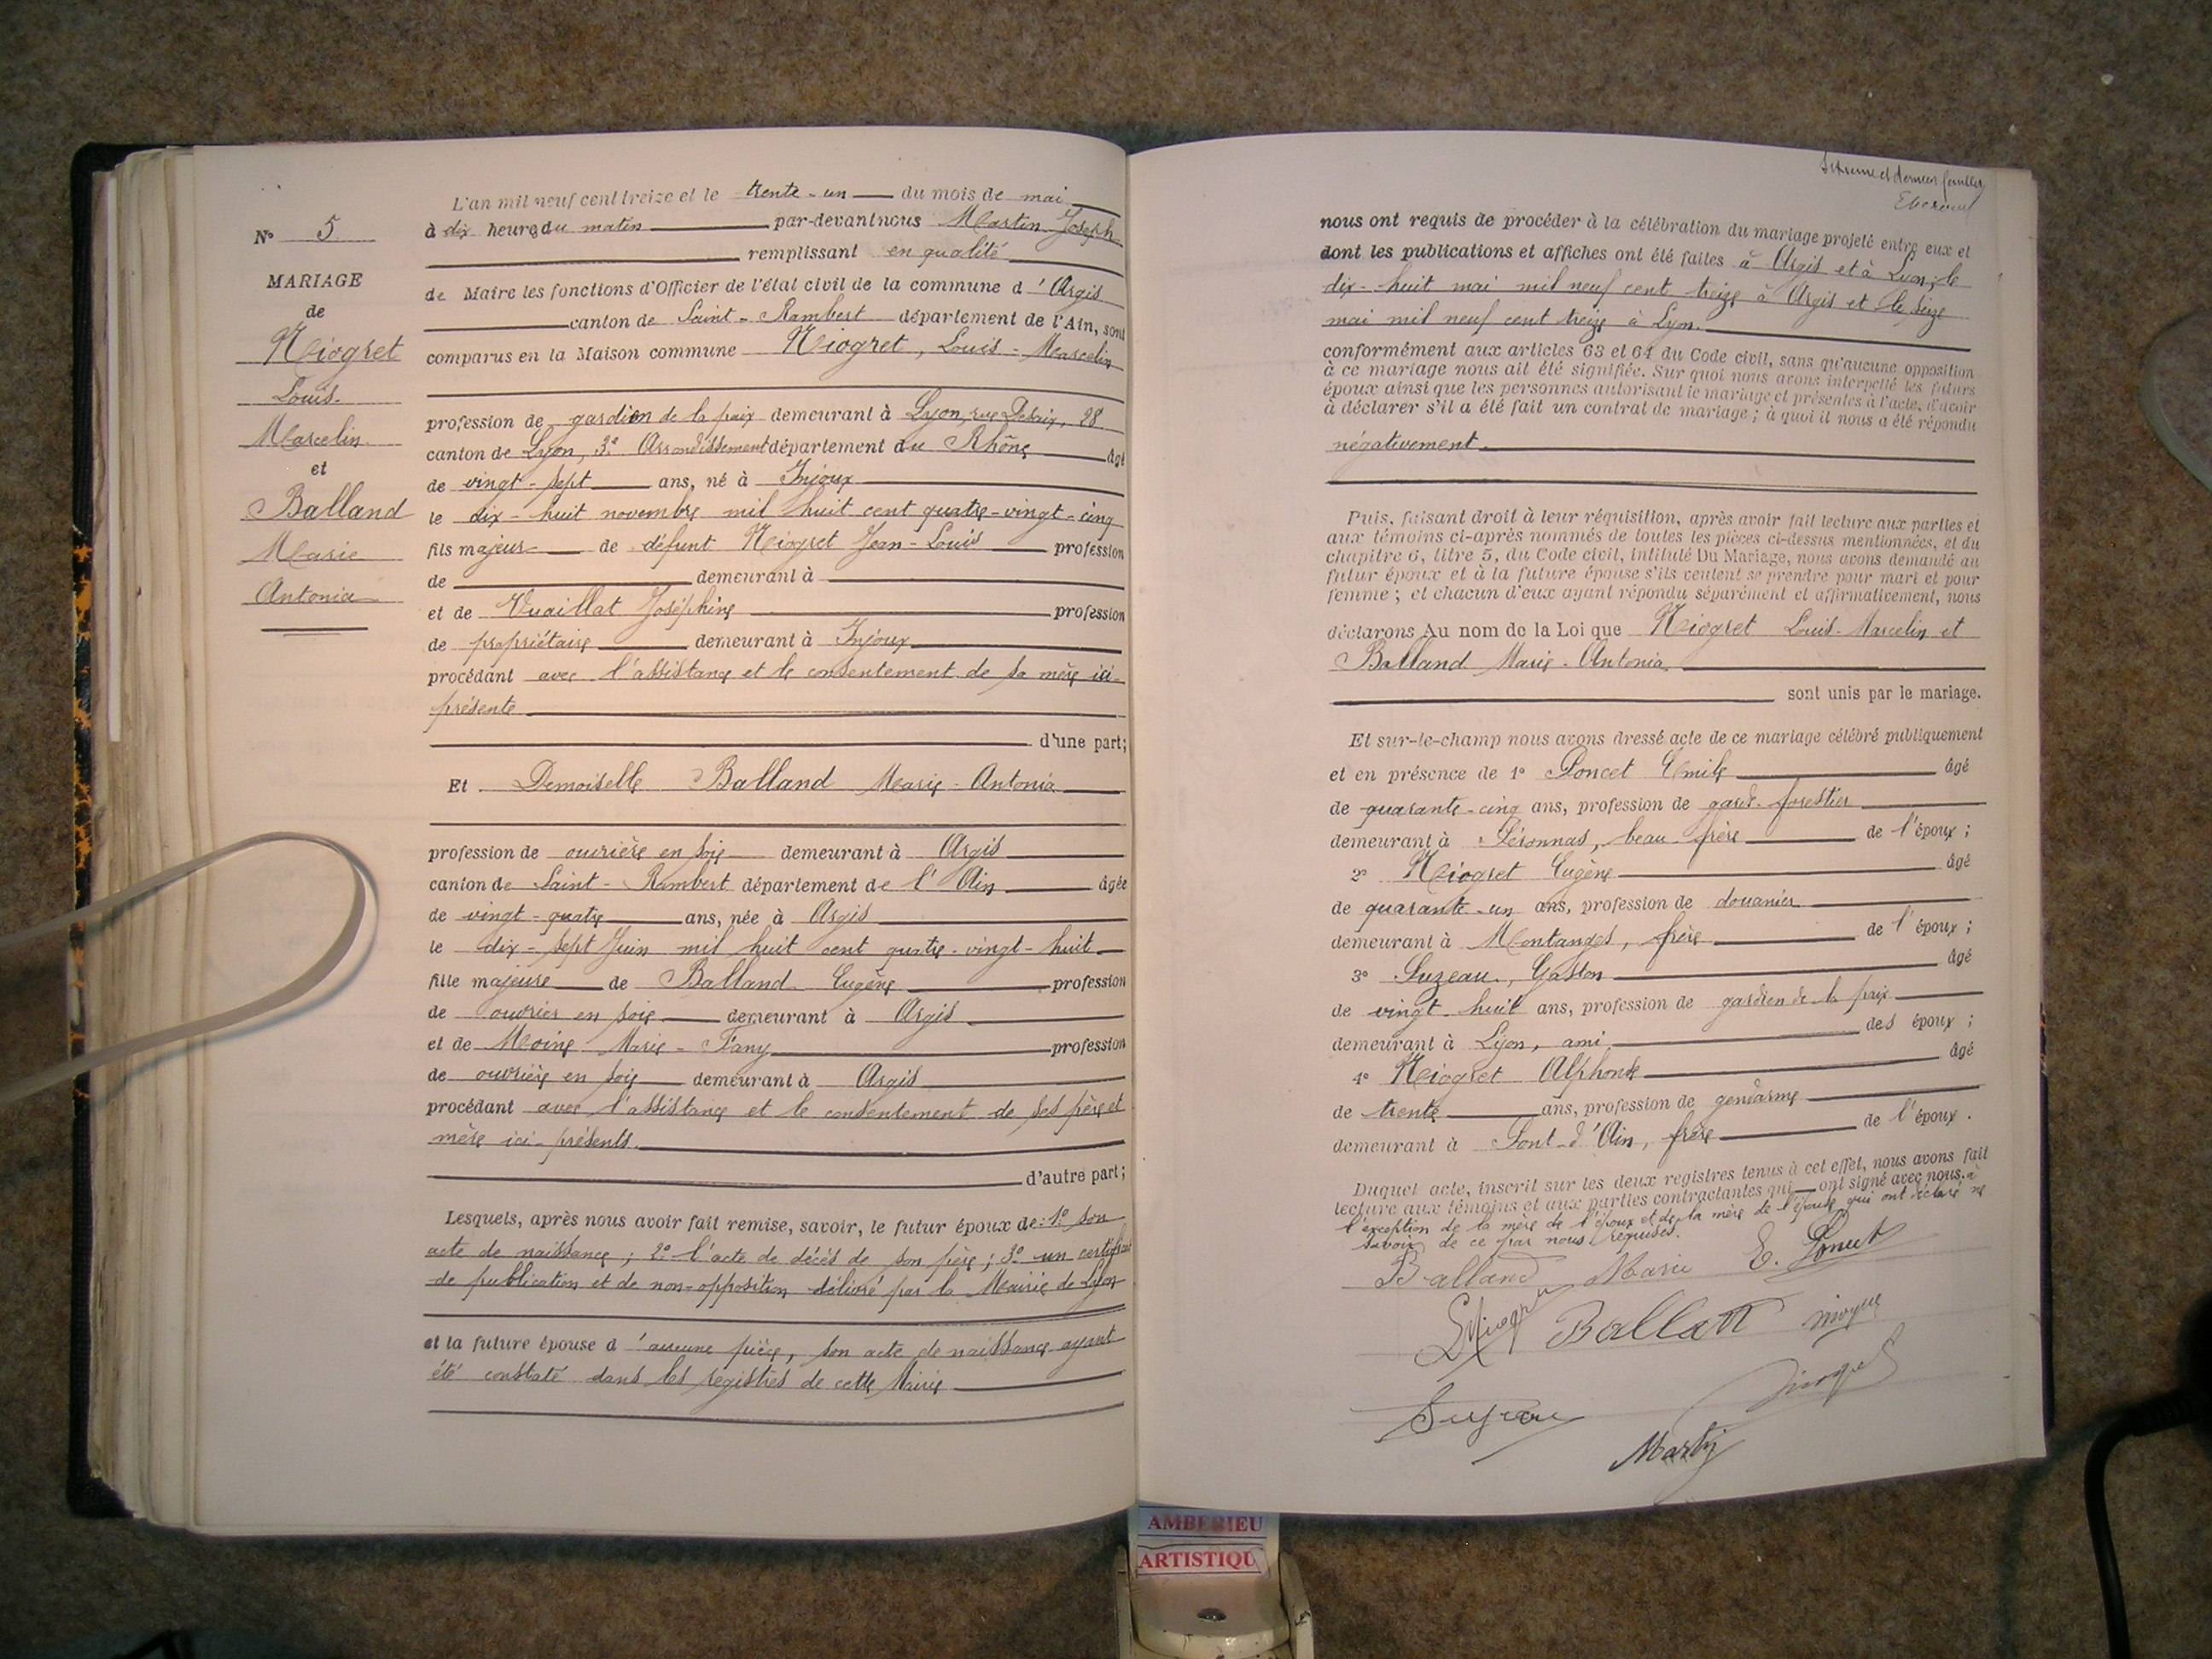 L'an mil neuf cent treize et le trente-un du mois de mai
à dix heures du matin par-devant nous Martin Joseph
remplissant en qualité
de Maire les fonctions d'Officier de l'état civil de la commune d'Argis
canton de Saint-Rambert département de l'Ain, sont
comparus en la Maison commune Niogret, Louis-Marcelin
profession de gardien de la paix demeurant à Lyon, rue Desaix, 28
canton de Lyon, 3e Arrondissement département du Rhône âgé
de vingt-sept ans, né à Injoux
le dix-huit novembre mil huit cent quatre-vingt-cinq
fils majeur de défunt Niogret Jean-Louis profession
de demeurant à
et de Vuaillat Joséphine profession
de propriétaire demeurant à Injoux
procédant avec l'assistance et le consentement de sa mère ici-
présente
d'une part;
Et Demoiselle Balland Marie-Antonia
profession de ouvrière en soie demeurant à Argis
canton de Saint-Rambert département de l'Ain âgée
de vingt-quatre ans, née à Argis
le dix-sept Juin mil huit cent quatre-vingt-huit
fille majeure de Balland Eugène profession
de ouvrier en soie demeurant à Argis
et de Moine Marie-Fany profession
de ouvrière en soie demeurant à Argis
procédant avec l'assistance et le consentement de ses père et
mère ici-présents.
d'autre part;
Lesquels, après nous avoir fait remise, savoir, le futur époux de: 1° son
acte de naissance; 2° l'acte de décès de son père; 3° un certificat
de publication et de non-opposition délivré par la Mairie de Lyon
et la future épouse d'aucune pièce, son acte de naissance ayant
été constaté dans les registres de cette Mairie
N° 5
MARIAGE
de
Niogret
Louis-
Marcelin
et
Balland
Marie
Antonia
et dernier feuillet
nous ont requis de procéder à la célébration du mariage projeté entre eux et
dont les publications et affiches ont été faites à Argis et à Lyon, le
dix-huit mai mil neuf cent treize à Argis et le seize
mai mil neuf cent treize à Lyon.
conformément aux articles 63 et 64 du Code civil, sans qu'aucune opposition
à ce mariage nous ait été signifiée. Sur quoi nous avons interpellé les futurs
époux ainsi que les personnes autorisant le mariage et présentes à l'acte, d'avoir
à déclarer s'il a été fait un contrat de mariage; à quoi il nous a été répondu
négativement
Puis, faisant droit à leur réquisition, après avoir fait lecture aux parties et
aux témoins ci-après nommés de toutes les pièces ci-dessus mentionnées, et du
chapitre 6, titre 5, du Code civil, intitulé Du Mariage, nous avons demandé au
futur époux et à la future épouse s'ils veulent se prendre pour mari et pour
femme; et chacun d'eux ayant répondu séparément et affirmativement, nous
déclarons Au nom de la Loi que Niogret Louis-Marcelin et
Balland Marie-Antonia
sont unis par le mariage.
Et sur-le-champ nous avons dressé acte de ce mariage célébré publiquement
et en présence de 1° Poncet Emile âgé
de quarante-cinq ans, profession de garde-forestier
demeurant à Péronnas, beau-frère de l'époux;
2° Niogret Eugène âgé
de quarante-un ans, profession de douanier
demeurant à Montanges, frère de l'époux;
3° Suzeau, Gaston âgé
de vingt-huit ans, profession de gardien de la paix
demeurant à Lyon, ami des époux;
4° Niogret Alphonse âgé
de trente ans, profession de gendarme
demeurant à Pont-d'Ain, frère de l'époux.
Duquel acte, inscrit sur les deux registres tenus à cet effet, nous avons fait
lecture aux témoins et aux parties contractantes qui ont signé avec nous, à
l'exception de la mère de l'époux et de la mère de l'épouse qui ont déclaré ne
savoir de ce par nous requises.
Balland Marie E. Poncet
Balland
Martin
AMBERIEU
ARTISTIQU